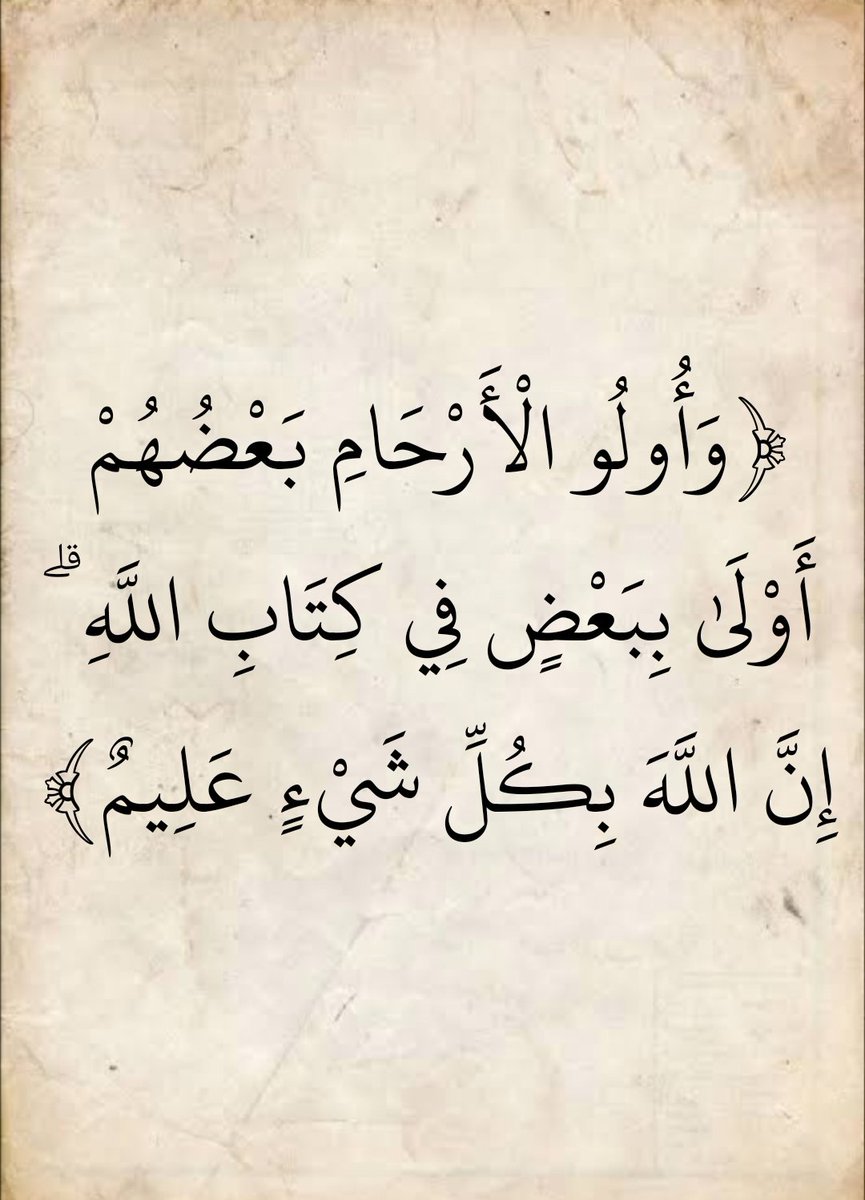 ﴿وَأُولُو الْأَرْحَامِ بَعْضُهُمْ
أَوْلَىٰ بِبَعْضٍ فِي كِتَابِ اللَّهِ ۗ
إِنَّ اللَّهَ بِكُلِّ شَيْءٍ عَلِيمٌ﴾